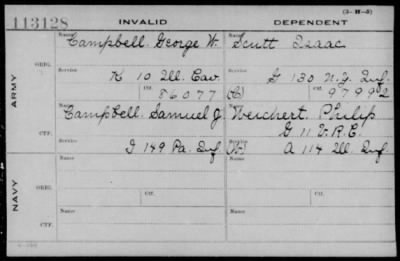 (3-H-5)
113128 INVALID DEPENDENT
Name Name
Campbell, George W. Scutt Isaac
ARMY
ORIG.
Service Service
K 10 Ill. Cav. G 130 N.Y. Inf.
Ctf. Ctf.
86077 97992
Campbell, Samuel J. Weichert, Philip
CTF.
G 11 V.R.C.
I 149 Pa. Inf. A 114 Ill. Inf.
NAVY
Name Name
ORIG.
Service Ctf. Service Ctf.
Name Name
CTF.